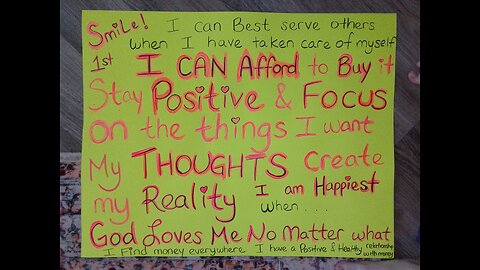 Smile! I can Best serve others
when I have taken care of myself
1st I CAN Afford to Buy it
Stay Positive & Focus
on the things I want
My THOUGHTS Create
my Reality I am Happiest
when . . .
God Loves Me No Matter what
I find money everywhere I have a Positive & Healthy relationship
with money